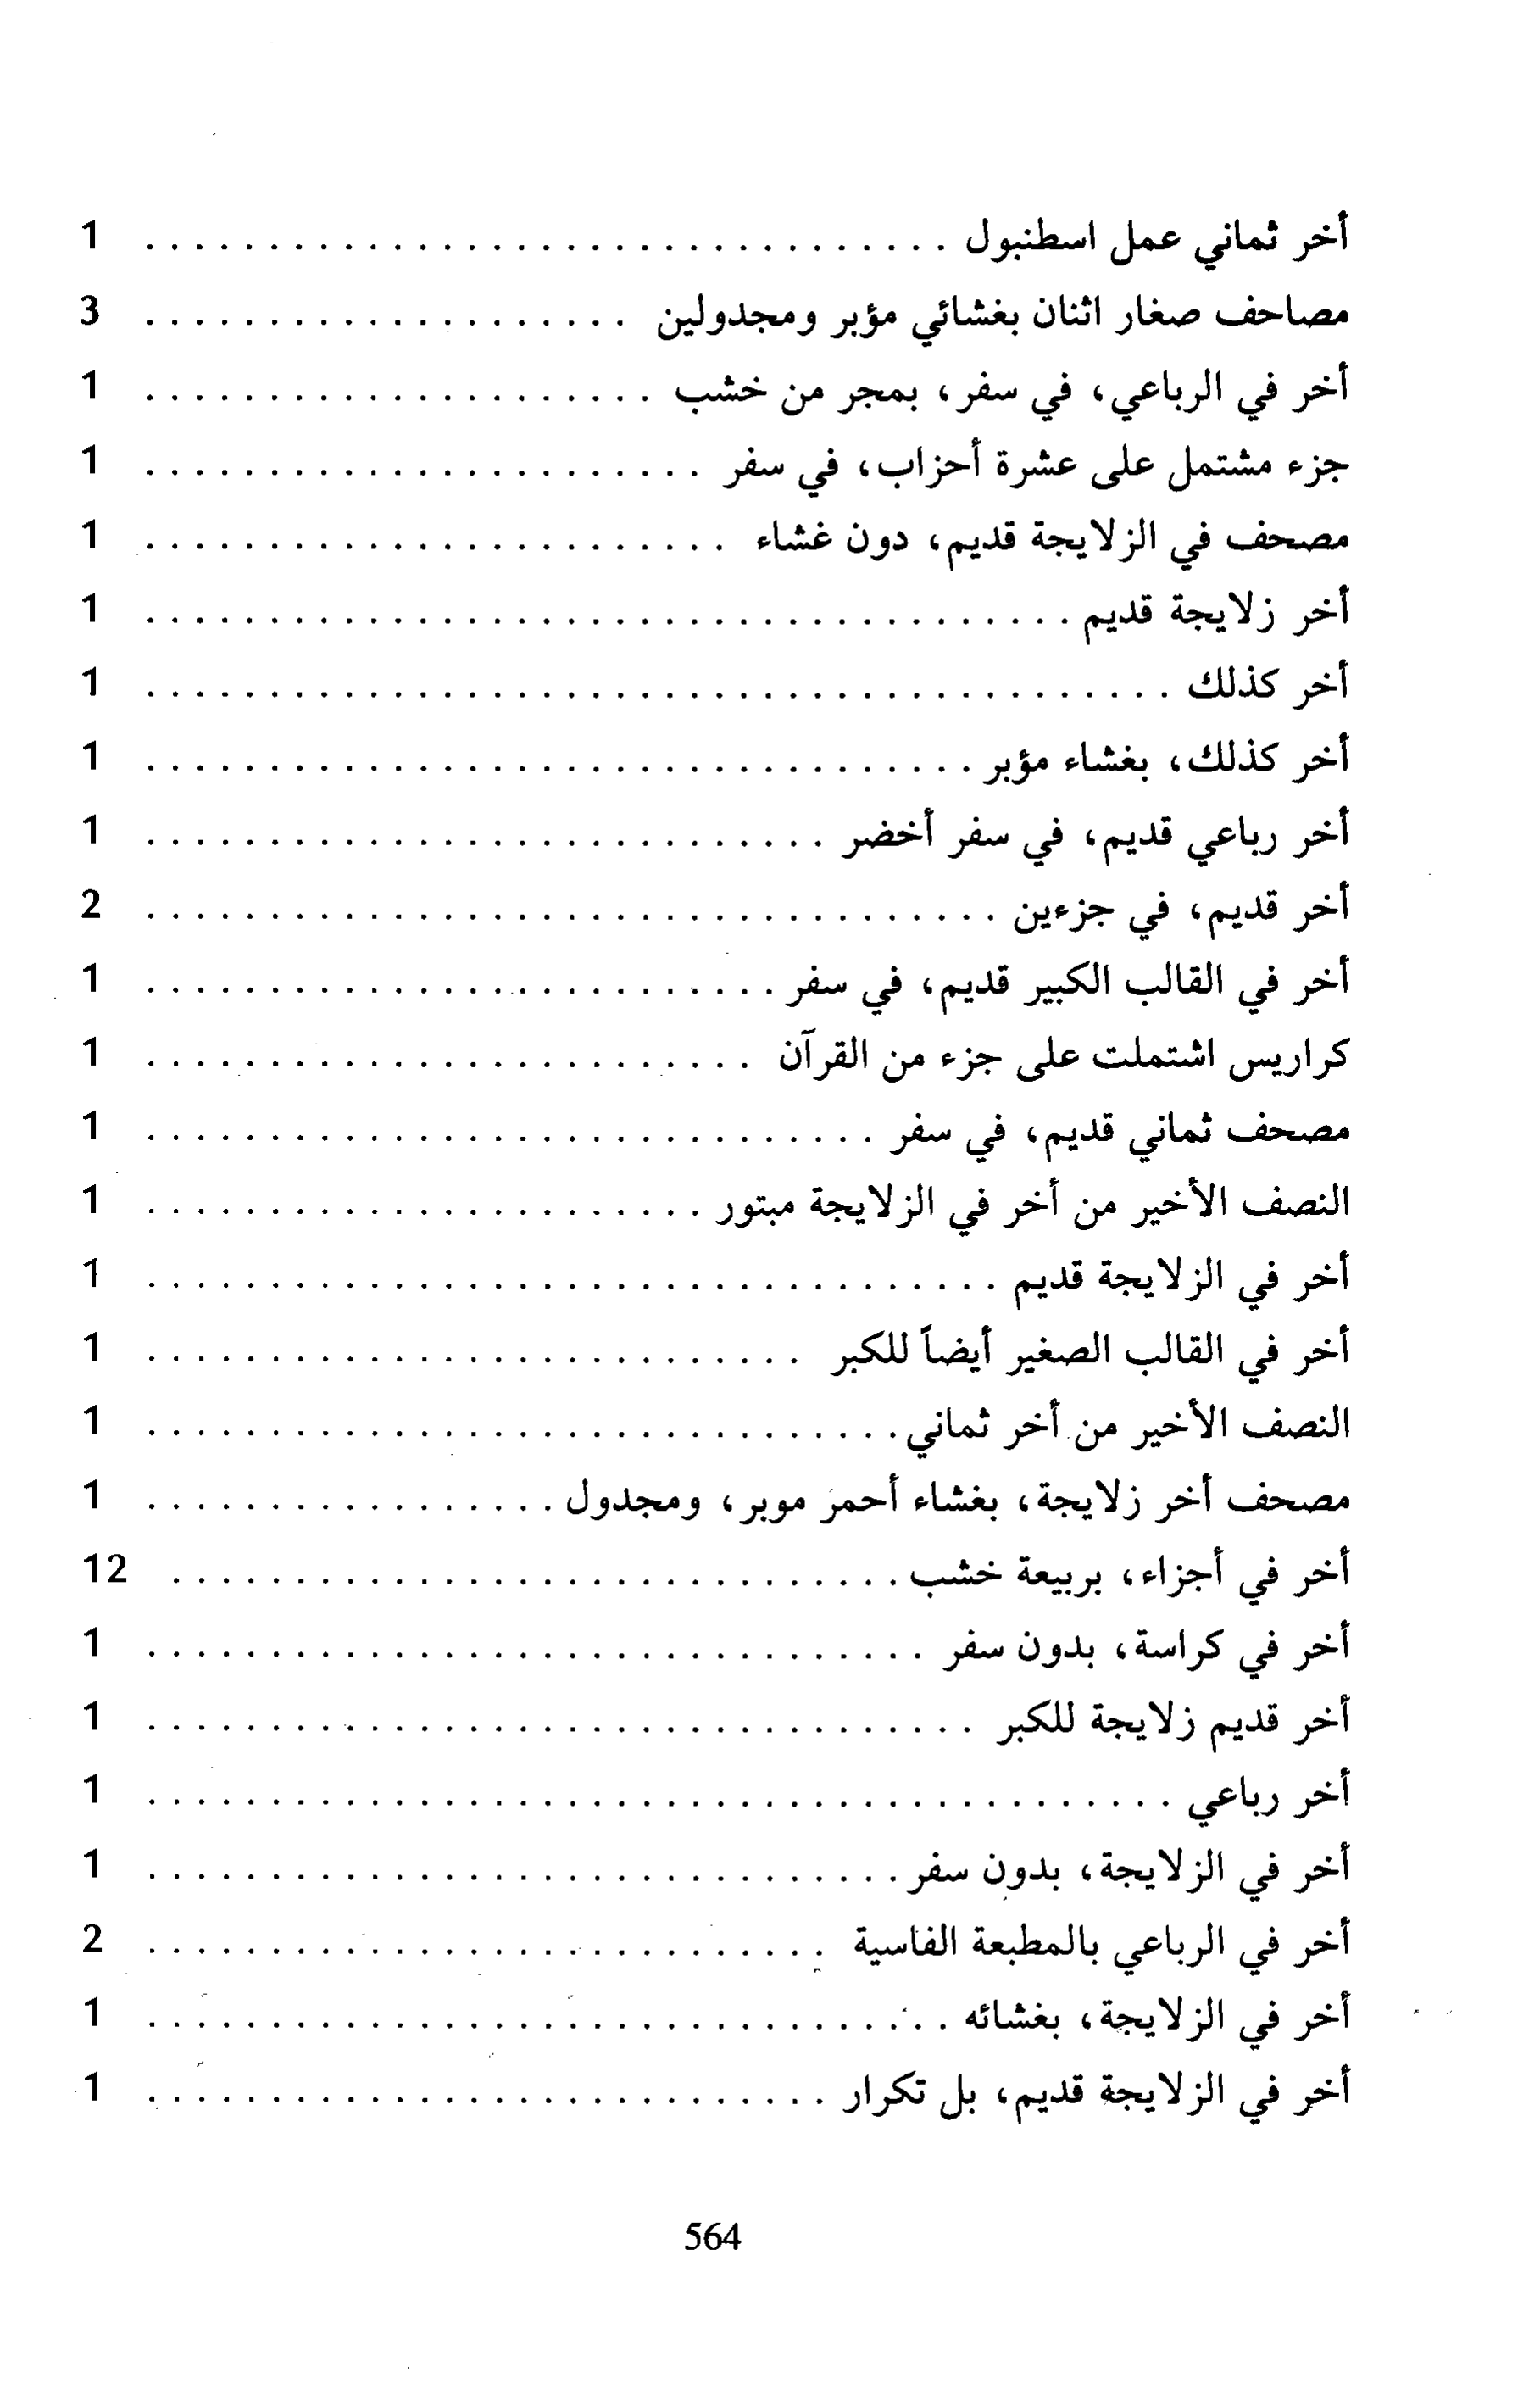 أخر ثماني عمل اسطنبول . . . . . . . . . . . . . . . . . . . . . . . . . . . . . . . . . 1
مصاحف صغار اثنان بغشائي مؤبر ومجدولين . . . . . . . . . . . . . . . . . . . . 3
أخر في الرباعي، في سفر، بمجر من خشب . . . . . . . . . . . . . . . . . . . . . 1
جزء مشتمل على عشرة أحزاب، في سفر . . . . . . . . . . . . . . . . . . . . . . . 1
مصحف في الزلايجة قديم، دون غشاء . . . . . . . . . . . . . . . . . . . . . . . . 1
أخر زلايجة قديم . . . . . . . . . . . . . . . . . . . . . . . . . . . . . . . . . . . . . . 1
أخر كذلك . . . . . . . . . . . . . . . . . . . . . . . . . . . . . . . . . . . . . . . . . . 1
أخر كذلك، بغشاء مؤبر . . . . . . . . . . . . . . . . . . . . . . . . . . . . . . . . . . 1
أخر رباعي قديم، في سفر أخضر . . . . . . . . . . . . . . . . . . . . . . . . . . . . 1
أخر قديم، في جزءين . . . . . . . . . . . . . . . . . . . . . . . . . . . . . . . . . . . 2
أخر في القالب الكبير قديم، في سفر . . . . . . . . . . . . . . . . . . . . . . . . . . 1
كراريس اشتملت على جزء من القرآن . . . . . . . . . . . . . . . . . . . . . . . . . 1
مصحف ثماني قديم، في سفر . . . . . . . . . . . . . . . . . . . . . . . . . . . . . . 1
النصف الأخير من أخر في الزلايجة مبتور . . . . . . . . . . . . . . . . . . . . . . . 1
أخر في الزلايجة قديم . . . . . . . . . . . . . . . . . . . . . . . . . . . . . . . . . . . 1
أخر في القالب الصغير أيضاً للكبر . . . . . . . . . . . . . . . . . . . . . . . . . . . 1
النصف الأخير من أخر ثماني . . . . . . . . . . . . . . . . . . . . . . . . . . . . . . . 1
مصحف أخر زلايجة، بغشاء أحمر موبر، ومجدول . . . . . . . . . . . . . . . . . 1
أخر في أجزاء، بربيعة خشب . . . . . . . . . . . . . . . . . . . . . . . . . . . . . . 12
أخر في كراسة، بدون سفر . . . . . . . . . . . . . . . . . . . . . . . . . . . . . . . . 1
أخر قديم زلايجة للكبر . . . . . . . . . . . . . . . . . . . . . . . . . . . . . . . . . . 1
أخر رباعي . . . . . . . . . . . . . . . . . . . . . . . . . . . . . . . . . . . . . . . . . . 1
أخر في الزلايجة، بدون سفر . . . . . . . . . . . . . . . . . . . . . . . . . . . . . . . 1
أخر في الرباعي بالمطبعة الفاسية . . . . . . . . . . . . . . . . . . . . . . . . . . . . 2
أخر في الزلايجة، بغشائه . . . . . . . . . . . . . . . . . . . . . . . . . . . . . . . . . 1
أخر في الزلايجة قديم، بل تكرار . . . . . . . . . . . . . . . . . . . . . . . . . . . . 1
564